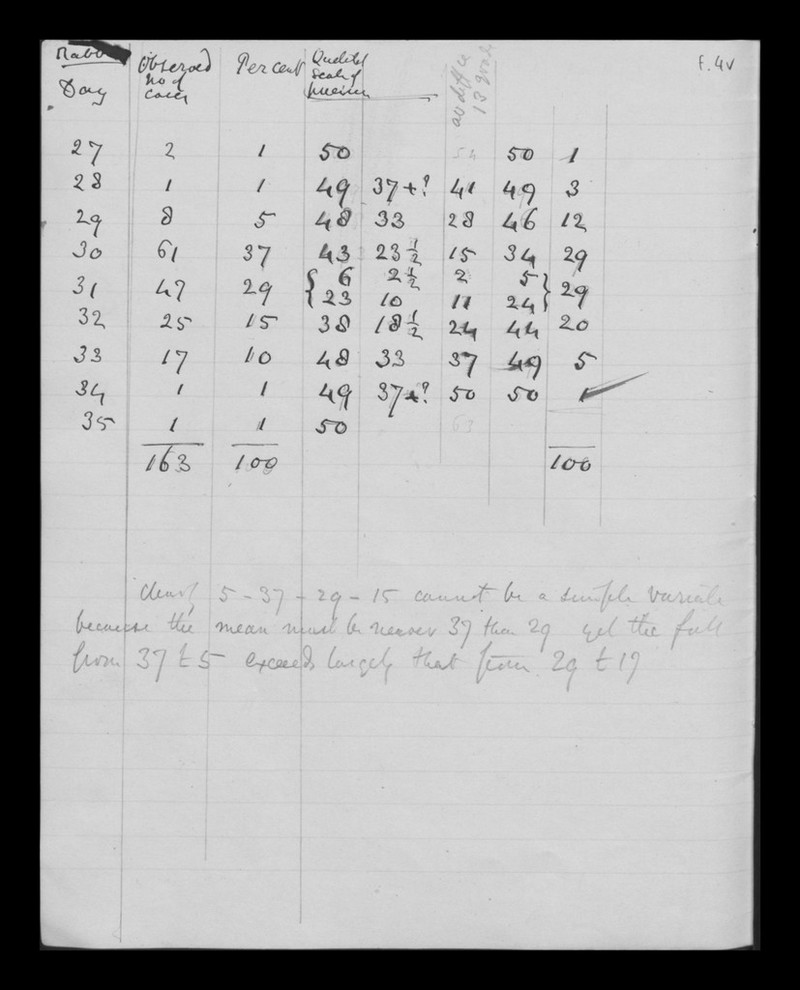 Rabb
F.4v
Day Observed No of Cases Per cent Scale of
as diffce 13 grades
27 2 1 50 54 50 1
28 1 1 49 37+? 41 49 3
29 8 5 48 33 28 46 12
30 61 37 43 23½ 15 34 29
31 47 29 { 6 2½ 2 5 } 29
23 10 11 24
32 25 15 38 18½ 24 44 20
33 17 10 48 33 37 49 5
34 1 1 49 37+? 50 50 1
35 1 1 50 63
163 100 100
clearly 5 - 37 - 29 - 15 cannot be a simple variate
because the mean must be nearer 37 than 29 yet the fall
from 37 to 5 exceeds largely that from 29 to 17